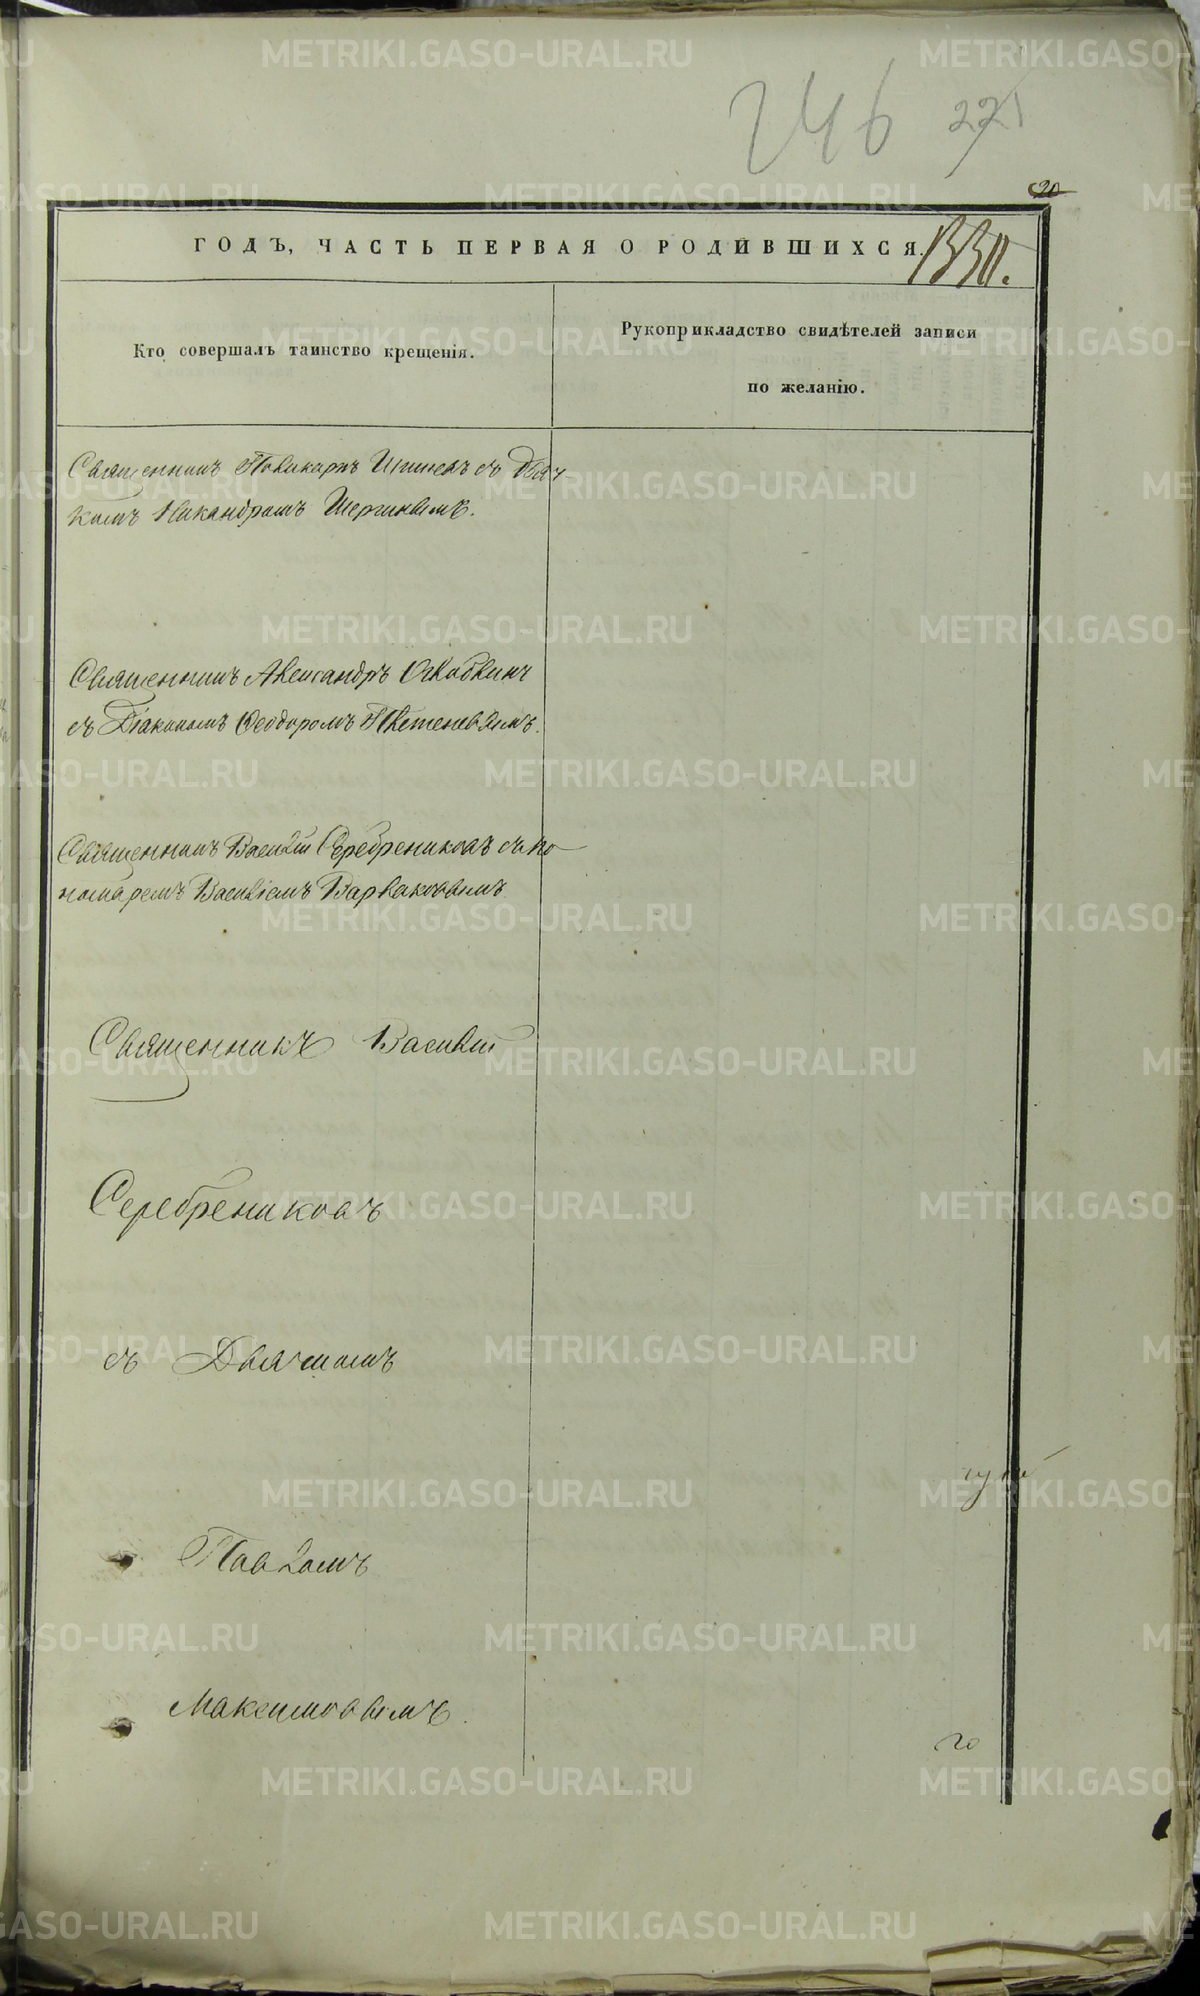 246 221
20
ГОДЪ, ЧАСТЬ ПЕРВАЯ О РОДИВШИХСЯ.
Кто совершалъ таинство крещенія.
Рукоприкладство свидѣтелей записи
по желанію.
Священникъ Поликарпъ съ Дьяч-
комъ Никандромъ Шергинымъ.
Священникъ Александръ
съ Діакономъ Ѳеодоромъ
Священникъ Василій Серебрениковъ съ по-
номаремъ Василіемъ Варлаковымъ
Священникъ Василій
Серебрениковъ
съ Дьячкомъ
Павломъ
Максимовымъ.
METRIKI.GASO-URAL.RU